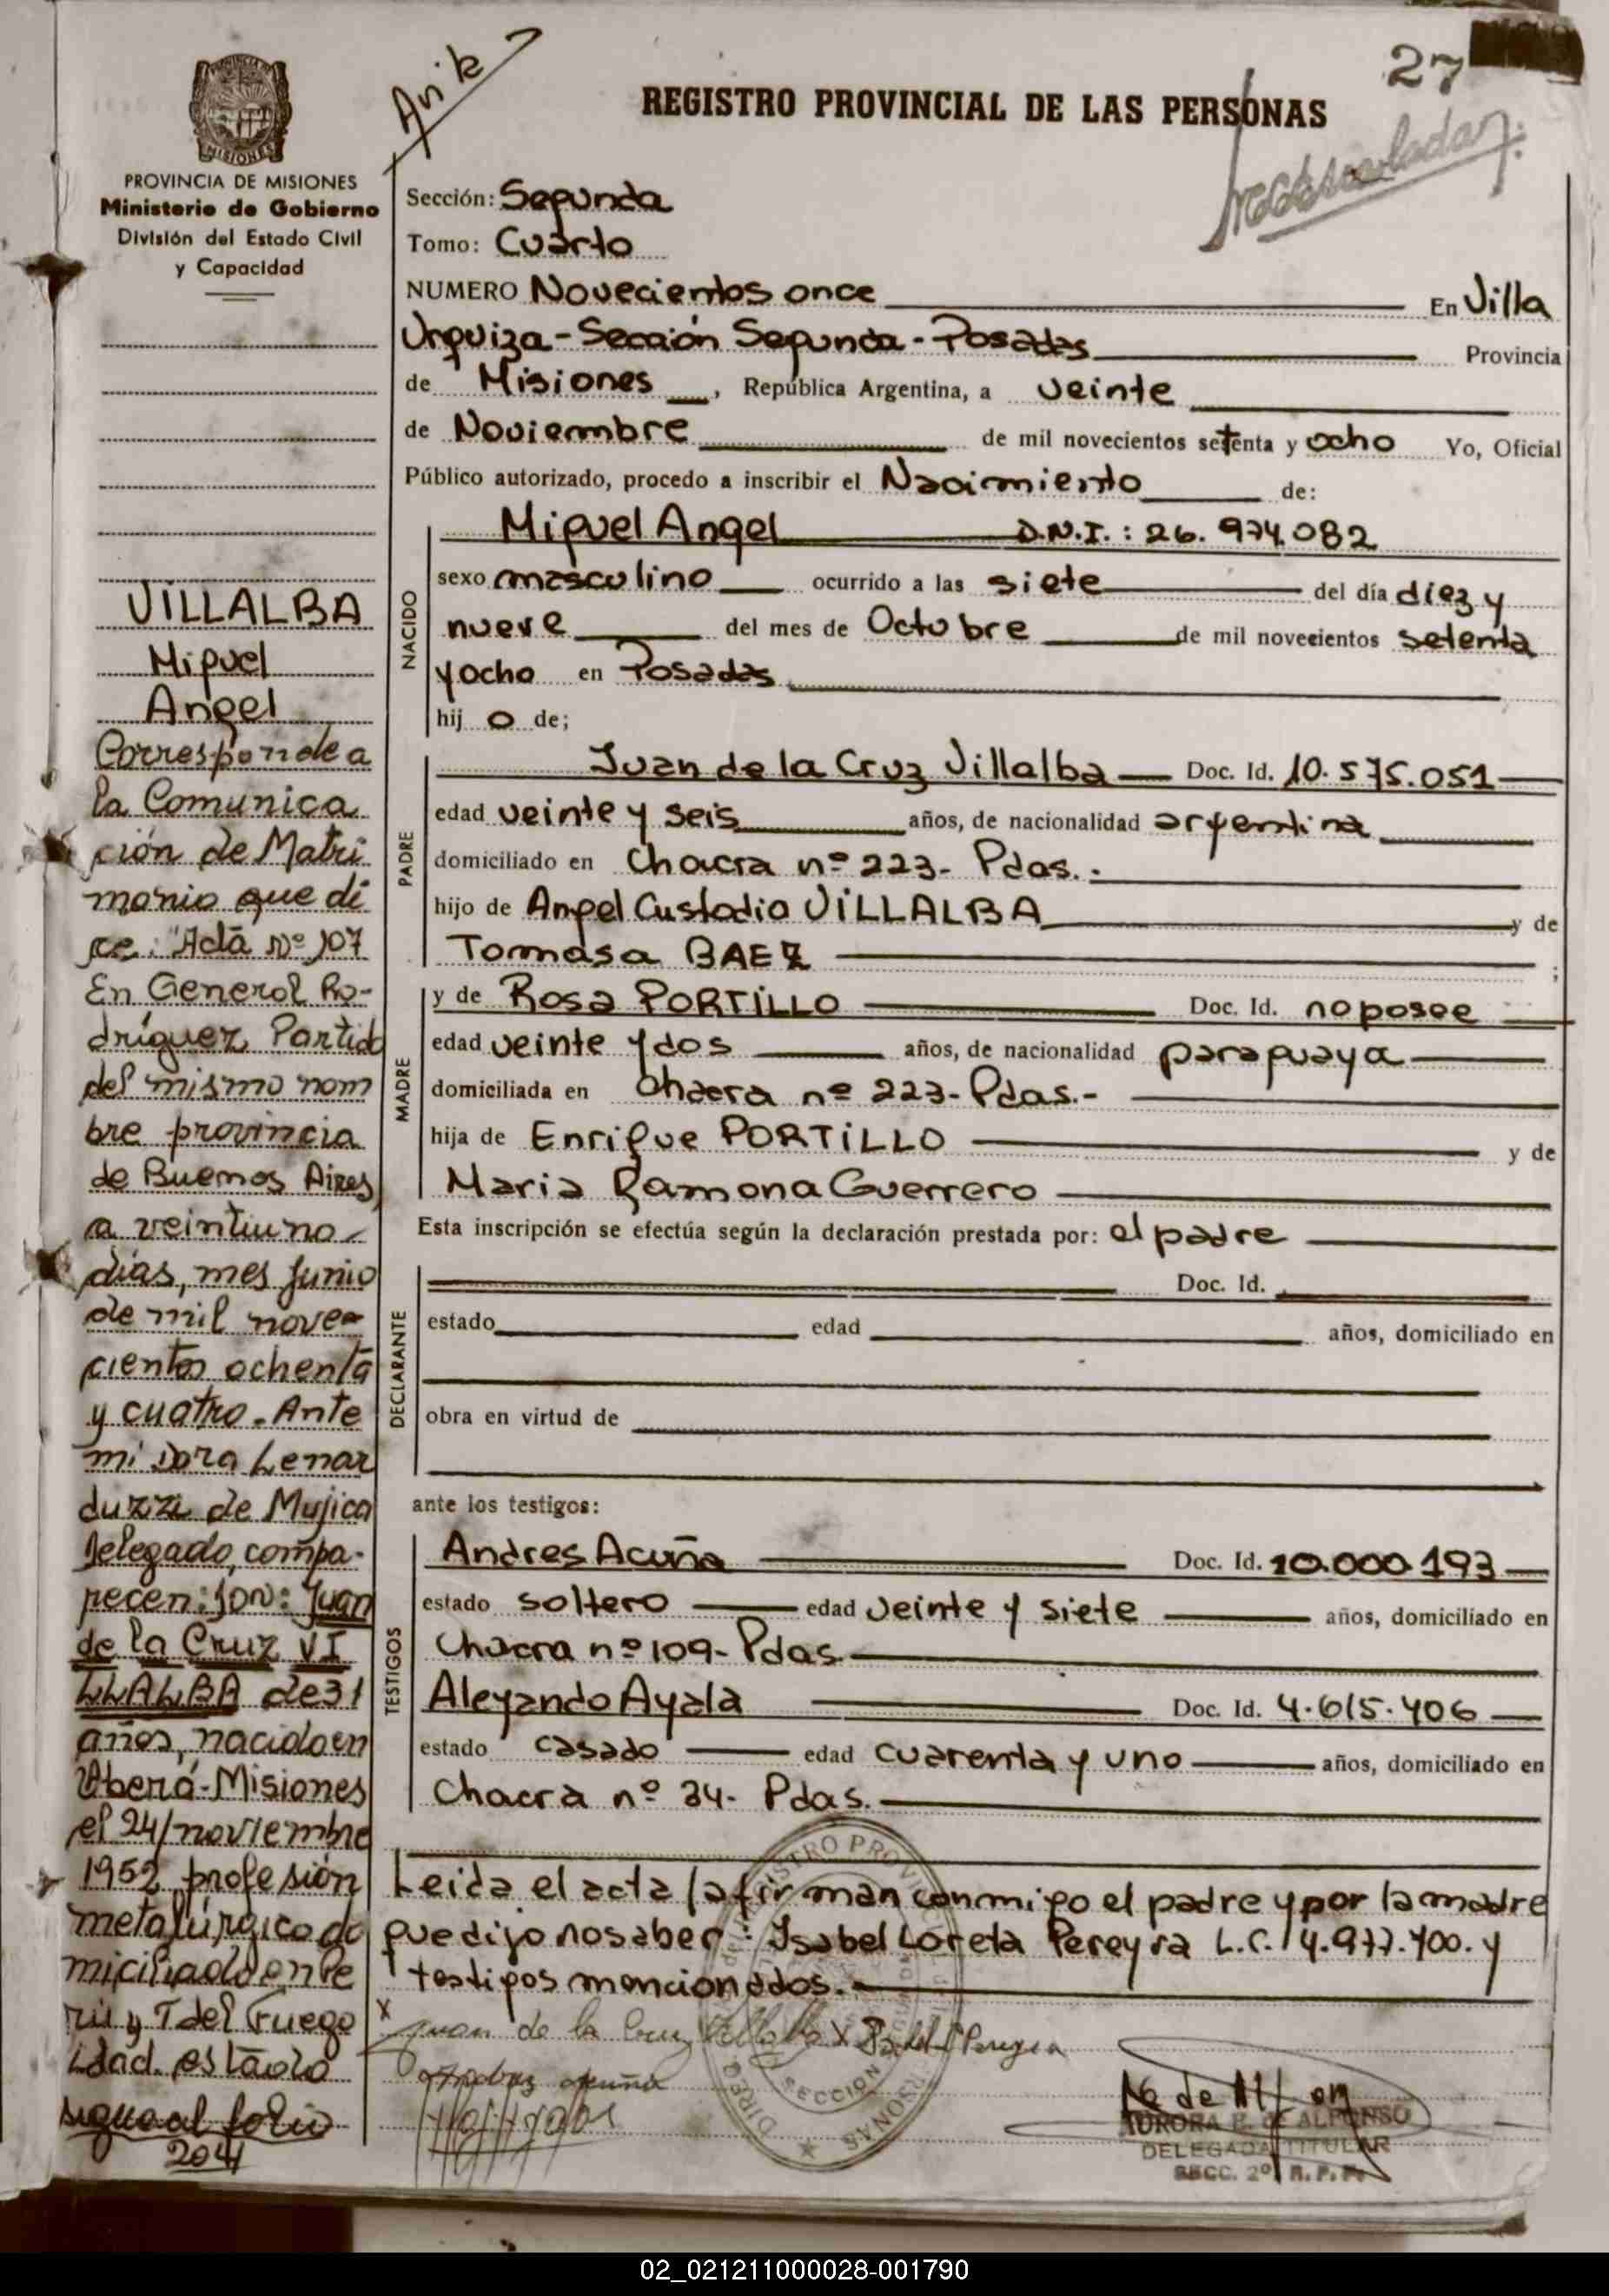 27
REGISTRO PROVINCIAL DE LAS PERSONAS
PROVINCIA DE MISIONES
Ministerio de Gobierno
División del Estado Civil
y Capacidad
Sección: Segunda
Tomo: Cuarto
NUMERO Novecientos once En Villa
Urquiza - Sección Segunda - Posadas Provincia
de Misiones, República Argentina, a veinte
de Noviembre de mil novecientos setenta y ocho Yo, Oficial
Público autorizado, procedo a inscribir el Nacimiento de:
NACIDO
Miguel Angel D.N.I.: 26.974.082
sexo masculino ocurrido a las siete del día diez y
nueve del mes de Octubre de mil novecientos setenta
y ocho en Posadas
hij o de;
PADRE
Juan de la Cruz Villalba Doc. Id. 10.575.051
edad veinte y seis años, de nacionalidad argentina
domiciliado en Chacra nº 223- Pdas.-
hijo de Angel Custodio VILLALBA y de
Tomasa BAEZ ;
MADRE
y de Rosa PORTILLO Doc. Id. no posee
edad veinte y dos años, de nacionalidad paraguaya
domiciliada en Chacra nº 223- Pdas.-
hija de Enrique PORTILLO y de
Maria Ramona Guerrero
Esta inscripción se efectúa según la declaración prestada por: el padre
DECLARANTE
Doc. Id.
estado edad años, domiciliado en
obra en virtud de
ante los testigos:
TESTIGOS
Andres Acuña Doc. Id. 10.000.193
estado soltero edad veinte y siete años, domiciliado en
Chacra nº 109- Pdas.
Aleyando Ayala Doc. Id. 4.615.406
estado casado edad cuarenta y uno años, domiciliado en
Chacra nº 34- Pdas.
Leida el acta la firman conmigo el padre y por la madre
que dijo no saber: Isabel Loreta Pereyra L.C. 4.977.400. y
testigos mencionados.
Juan de la Cruz Villalba x
AURORA R. de ALFONSO
DELEGADA TITULAR
SECC. 2º R. P. P.
VILLALBA
Miguel
Angel
Corresponde a
la Comunica
ción de Matri
monio que di
ce: "Acta Nº 107
En General Ro-
dríguez Partido
del mismo nom
bre provincia
de Buenos Aires,
a veintiuno
días, mes Junio
de mil nove-
cientos ochenta
y cuatro. Ante
mi Dora Lenar
duzzi de Mujica
Delegado, compa-
recen: DON: Juan
de la Cruz VI
LLALBA de 31
años, nacido en
Oberá-Misiones
el 24/noviembre
1952 profesión
metalúrgico do
miciliado en Pe
rú y T del Fuego
Ldad. estado
sigue al folio
204
02_021211000028-001790